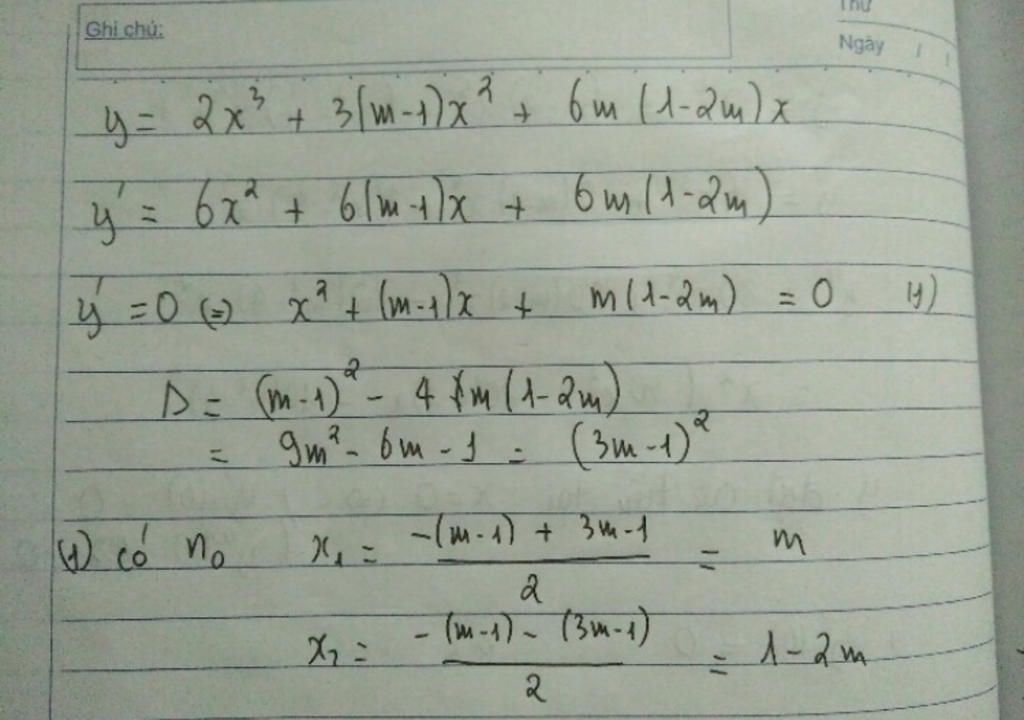 Ghi chú:
Thứ
Ngày / /
y = 2x³ + 3(m-1)x² + 6m (1-2m)x
y' = 6x² + 6(m-1)x + 6m(1-2m)
y' = 0 (=) x² + (m-1)x + m(1-2m) = 0 (1)
Δ = (m-1)² - 4 m(1-2m)
= 9m² - 6m - 1 = (3m-1)²
(1) có n₀ x₁ = \frac{-(m-1) + 3m-1}{2} = m
x₂ = \frac{-(m-1) - (3m-1)}{2} = 1-2m